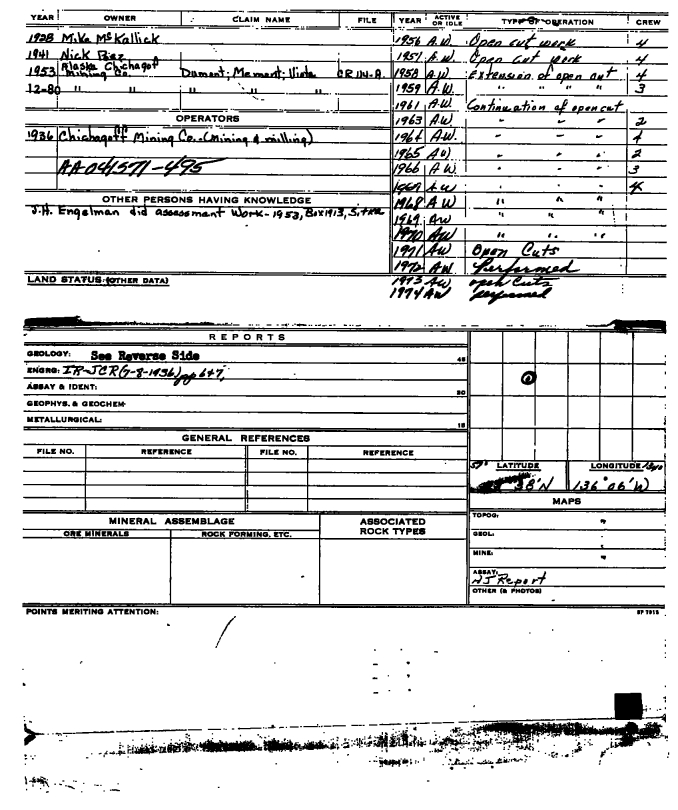 YEAR OWNER CLAIM NAME FILE YEAR ACTIVE OR IDLE TYPE OF OPERATION CREW
1928 Mike McKallick 1956 A.W. Open cut work 4
1941 Nick 1957 A.W. Open cut work 4
1953 Alaska Chichagof Mining Co. Dumont; Mement; Vista 1958 A.W. Extension of open cut 4
12-80 " " " " " 1959 A.W. " " " " 3
1961 A.W. Continuation of open cut
OPERATORS 1963 A.W. " " " 2
1936 Chichagoff Mining Co. (Mining & milling) 1964 A.W. " " " 4
1965 A.W. " " " 2
AA 041571-495 1966 A.W. " " " 3
A.W. " " " 4
OTHER PERSONS HAVING KNOWLEDGE 1968 A.W. " " "
J.H. Engelman did assessment work-1953, Box 1913, Sitka 1969 AW " " "
1970 AW " " "
1971 AW Open Cuts
1972 AW Performed
LAND STATUS: (OTHER DATA) 1973 AW open cuts
1974 AW performed
REPORTS
GEOLOGY: See Reverse Side 45
ENGRG: IR-JCR (7-8-1936) pp 6+7,
ASSAY & IDENT: 30
GEOPHYS. & GEOCHEM:
METALLURGICAL: 15
GENERAL REFERENCES
FILE NO. REFERENCE FILE NO. REFERENCE
57° LATITUDE LONGITUDE
38'N 136° 06'W
MAPS
MINERAL ASSEMBLAGE ASSOCIATED ROCK TYPES TOPOG:
ORE MINERALS ROCK FORMING, ETC. GEOL:
MINE:
ASSAY:
Report
OTHER (& PHOTOS)
POINTS MERITING ATTENTION: